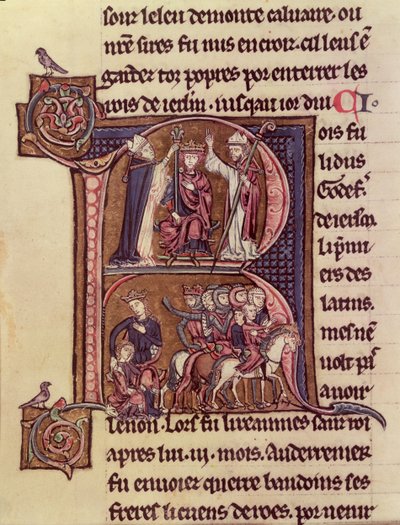 sour leleu demonte caluarre. ou
nr̃e sires fu mis encroir. cil leus ẽ
garder toz popres por enterrer les
rois de ierlm̃. iusqau ior dui CI.
Rois fu
lidus
Godef̃.
de
lip̃mi
ers des
latins.
mes nẽ
uolt
auoir
lenon. Lors fu liroiaumes sanz roi
apres lui .iii. mois. Auderrenier
fu enuoiez querre baudoins ses
freres li cuens de roes. por uenir